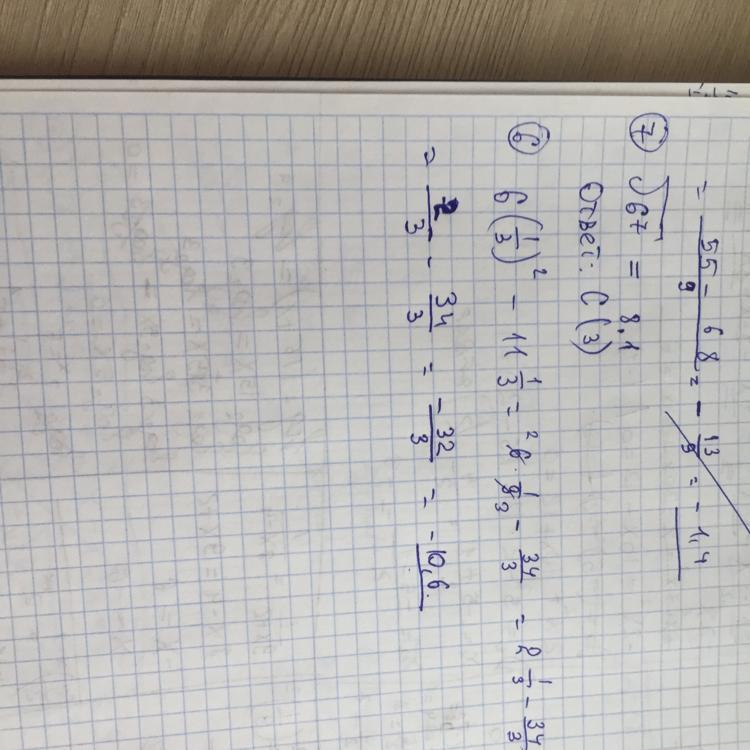 = 55 - 68 / 9 = - 13/9 = - 1,4
⑦ √67 = 8,1
Ответ: С (3)
⑥ 6(1/3)² - 11 1/3 = ² 6 · 1/9 ₃ - 34/3 = 2 1/3 - 34/3
= 2/3 - 34/3 = - 32/3 = - 10,6.